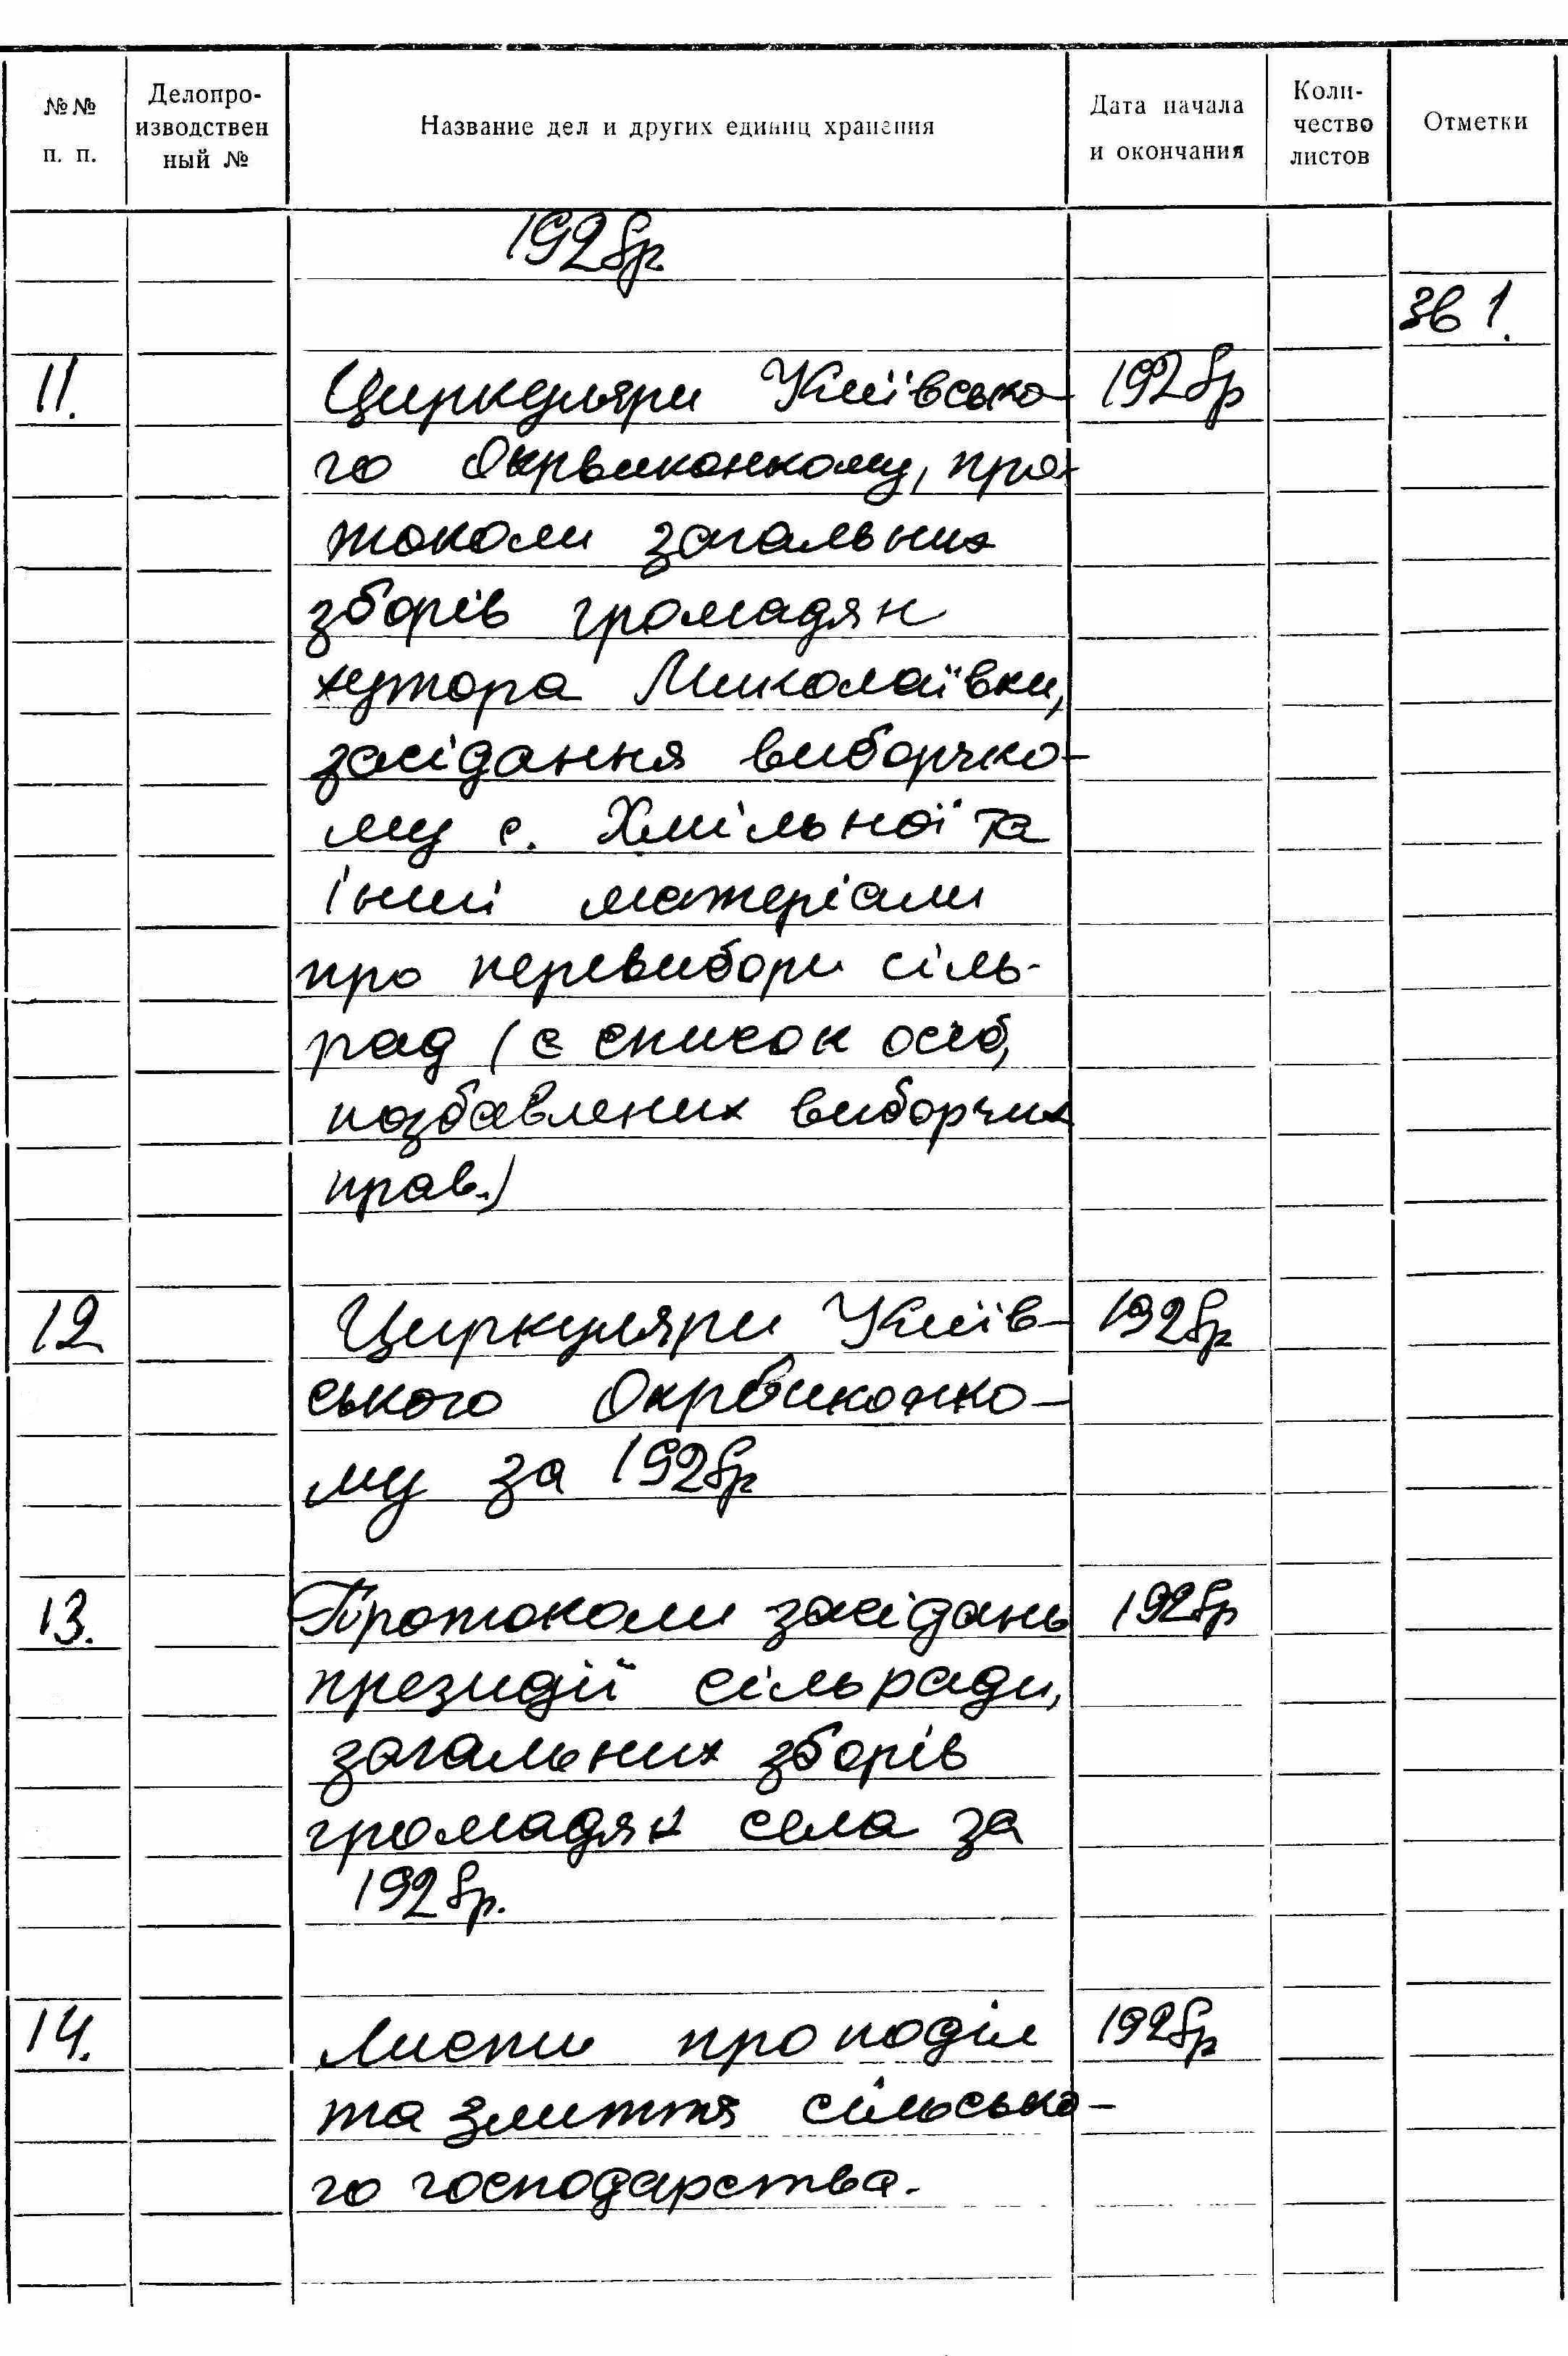 №№ п. п. Делопро-изводствен ный № Название дел и других единиц хранения Дата начала и окончания Коли-чество листов Отметки
1928р
Зв 1.
11. Циркуляри Київсько- 1928р
го Окрвиконкому, про-
токоли загальних
зборів громадян
хутора Миколаївки,
засідання виборчко-
му с. Хмільної та
інші матеріали
про перевибори сіль-
рад (є список осіб,
позбавлених виборчих
прав.)
12 Циркуляри Київ- 1928р
ського Окрвиконко-
му за 1928р
13. Протоколи засідань 1928р
президії сільради,
загальних зборів
громадян села за
1928р.
14. Листи про поділ 1928р
та злиття сільсько-
го господарства.